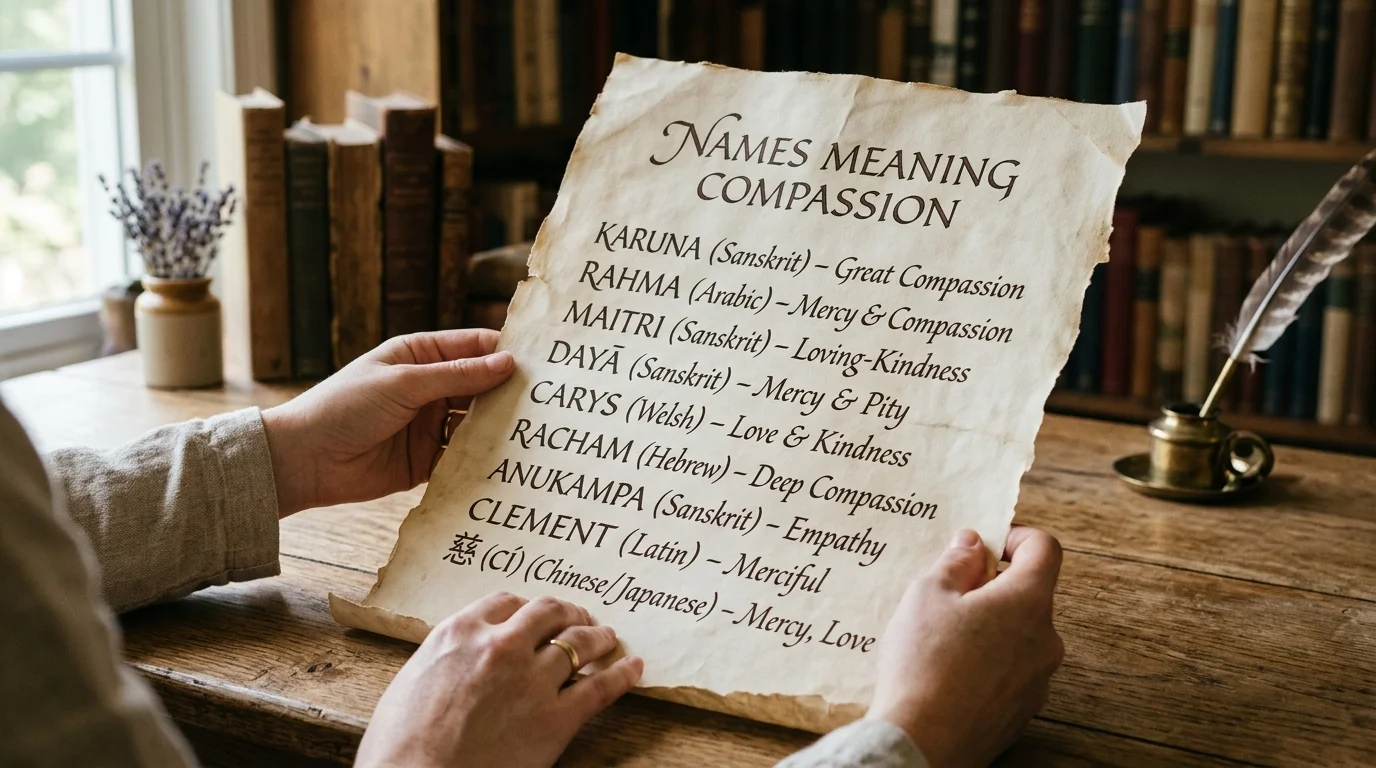 NAMES MEANING
COMPASSION
KARUNA (Sanskrit) – Great Compassion
RAHMA (Arabic) – Mercy & Compassion
MAITRI (Sanskrit) – Loving-Kindness
DAYĀ (Sanskrit) – Mercy & Pity
CARYS (Welsh) – Love & Kindness
RACHAM (Hebrew) – Deep Compassion
ANUKAMPA (Sanskrit) – Empathy
CLEMENT (Latin) – Merciful
慈 (CÍ) (Chinese/Japanese) – Mercy, Love